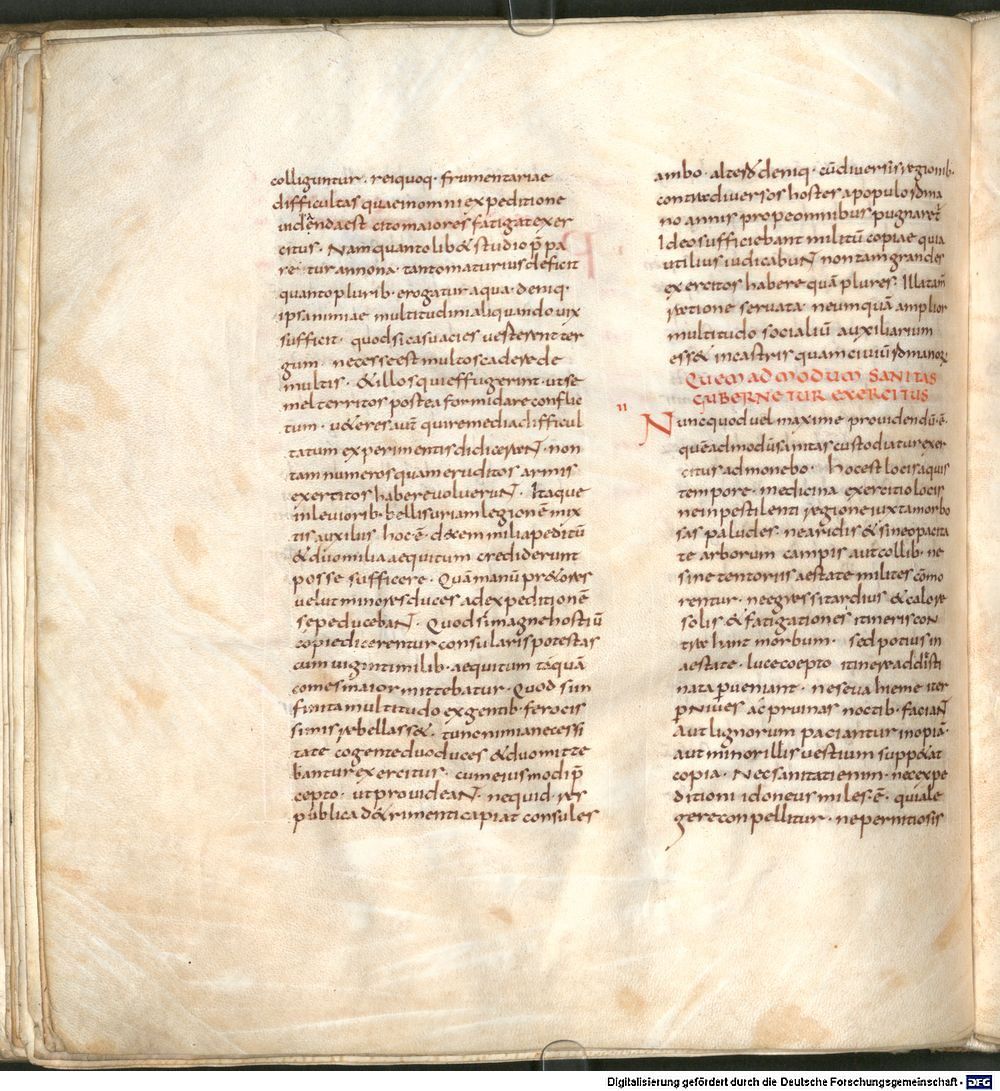 colliguntur. reiquoq· frumentariae
difficultas quaeinomni expeditione
uidendaest citomaiores fatigat exer
citus. Nam quanto lib& studio p̄pa
retur annona· tanto maturius deficit
quanto plurib· erogatur aqua· deniq·
ipsa nimiae multitudini aliquando uix
sufficit· quodsi casu acies uesterent ter
gum· necesse est multos cadere de
multis· & illos qui effugerint· ut se
mel territos postea formidare conflic
tum· ueteres aut̄ qui remedia difficul
tatum experimentis didicerunt· non
tam numeros quam eruditos armis
exercitos habere uoluerunt· Itaque
in leuiorib· bellis uriam legionē mix
tis auxiliis hoc ē· decem milia peditū
& duo milia aequitum crediderunt
posse sufficere· Quā manū pr&ores
uelut minores duces ad expeditionē
sepe ducebant· Quodsi magne hostiū
copie dicerentur consularis potestas
cum uiginti milib· aequitum taquā
comes maior mittebatur· Quod si in
finita multitudo ex gentib· ferocis
simis rebellass&· tunc nimia necessi
tate cogente duo duces & duo mitte
bantur exercitus· cum eiusmodi p̄
cepto· ut prouideant· nequid rer
publica d&rimenti capiat consules
ambo· alterue deniq· cū diuersis regionib·
contra diuersos hostes a populo roma
no annis prope omnibus pugnaret̄
Ideo sufficiebant militū copiae quia
utilius iudicabunt non tam grandes
exercitos habere quā plures· Illa tam̄
ratione seruata ne umquā amplior
multitudo socialiū auxiliarium
ess& in castris quam ciuiū romanorum
QUEM AD MODUM SANITAS
GUBERNETUR EXERCITUS
II
Nunc quod uel maxime prouidendū· ē·
quē ad modū sanitas custodiatur exer
citus admonebo· hoc est locis aquis
tempore· medicina exercitio locis
ne in pestilenti regione iuxta morbo
sas paludes· ne aridis & sine opacita
te arborum campis aut collib· ne
sine tentoriis aestate milites cōmo
rentur· ne egressi tardius & calore
solis & fatigationes itineris con
trahant morbum· sed potius in
aestate· luce coepto itinere ad disti
nata ꝑueniant· ne seua hieme iter
ꝑ niues ac pruinas noctib· faciant
Aut lignorum paciantur inopiā·
aut minor illis uestium supp&at
copia· Nec sanitati enim· nec expe
ditioni idoneus miles· ē· qui ale
gere conpellitur· ne pernitiosis
Digitalisierung gefördert durch die Deutsche Forschungsgemeinschaft - DFG